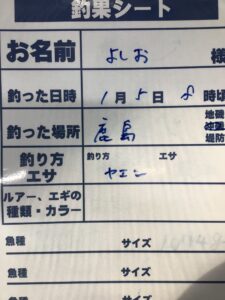 釣果シート
お名前 よしお 様
釣った日時 1月5日 8時頃
釣った場所 鹿島 地磯
堤防
釣り方 エサ
釣り方 エサ
ヤエン
ルアー、エギの
種類・カラー
魚種 サイズ
魚種 サイズ
魚種 サイズ